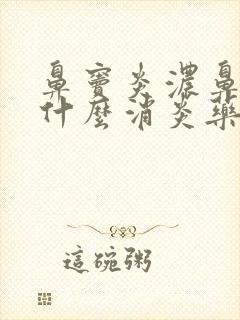 鼻竇炎濃鼻
什麼消炎藥
這碗粥